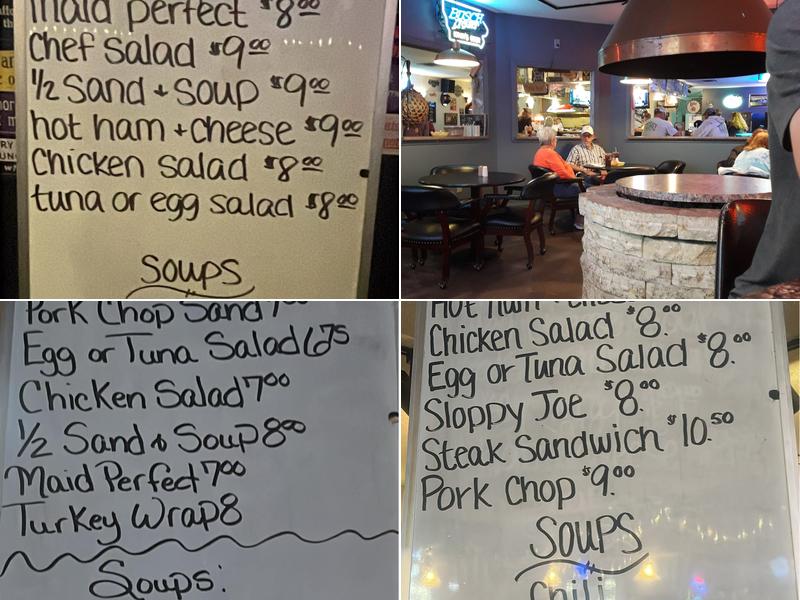 maid perfect $8.00
Chef Salad $9.00
1/2 Sand + Soup $9.00
hot ham + cheese $9.00
Chicken salad $8.00
tuna or egg salad $8.00
Soups
BUSCH
Pork Chop Sand 7.00
Egg or Tuna Salad 6.75
Chicken Salad 7.00
1/2 Sand & Soup 8.00
Maid Perfect 7.00
Turkey Wrap 8
Soups:
Hot Ham
Chicken Salad $8.00
Egg or Tuna Salad $8.00
Sloppy Joe $8.00
Steak Sandwich $10.50
Pork Chop $9.00
Soups
Chili